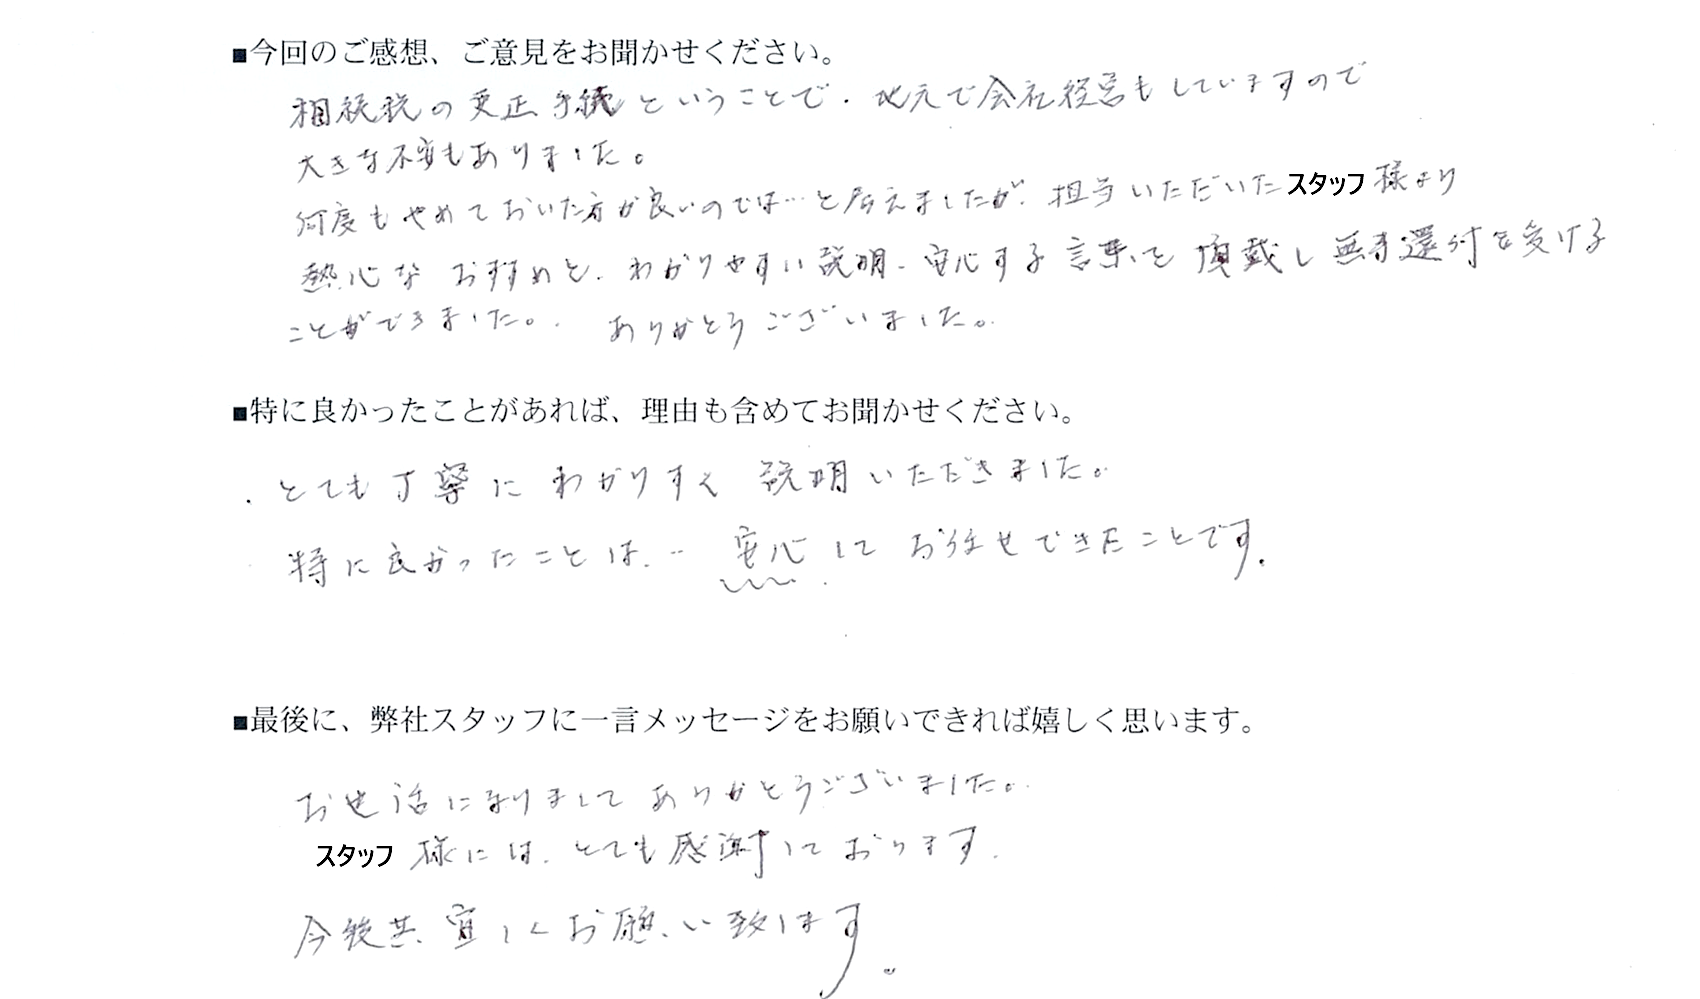 ■今回のご感想、ご意見をお聞かせください。
相続税の更正手続ということで、地元で会社経営もしていますので
大きな不安もありました。
何度もやめておいた方が良いのでは…と考えましたが、担当いただいたスタッフ様より
熱心なおすすめと、わかりやすい説明、安心する言葉を頂戴し無事還付を受ける
ことができました。ありがとうございました。
■特に良かったことがあれば、理由も含めてお聞かせください。
・とても丁寧にわかりすく説明いただきました。
特に良かったことは、…安心してお任せできたことです。
■最後に、弊社スタッフに一言メッセージをお願いできれば嬉しく思います。
お世話になりましてありがとうございました。
スタッフ様には、とても感謝しております。
今後共、宜しくお願い致します。